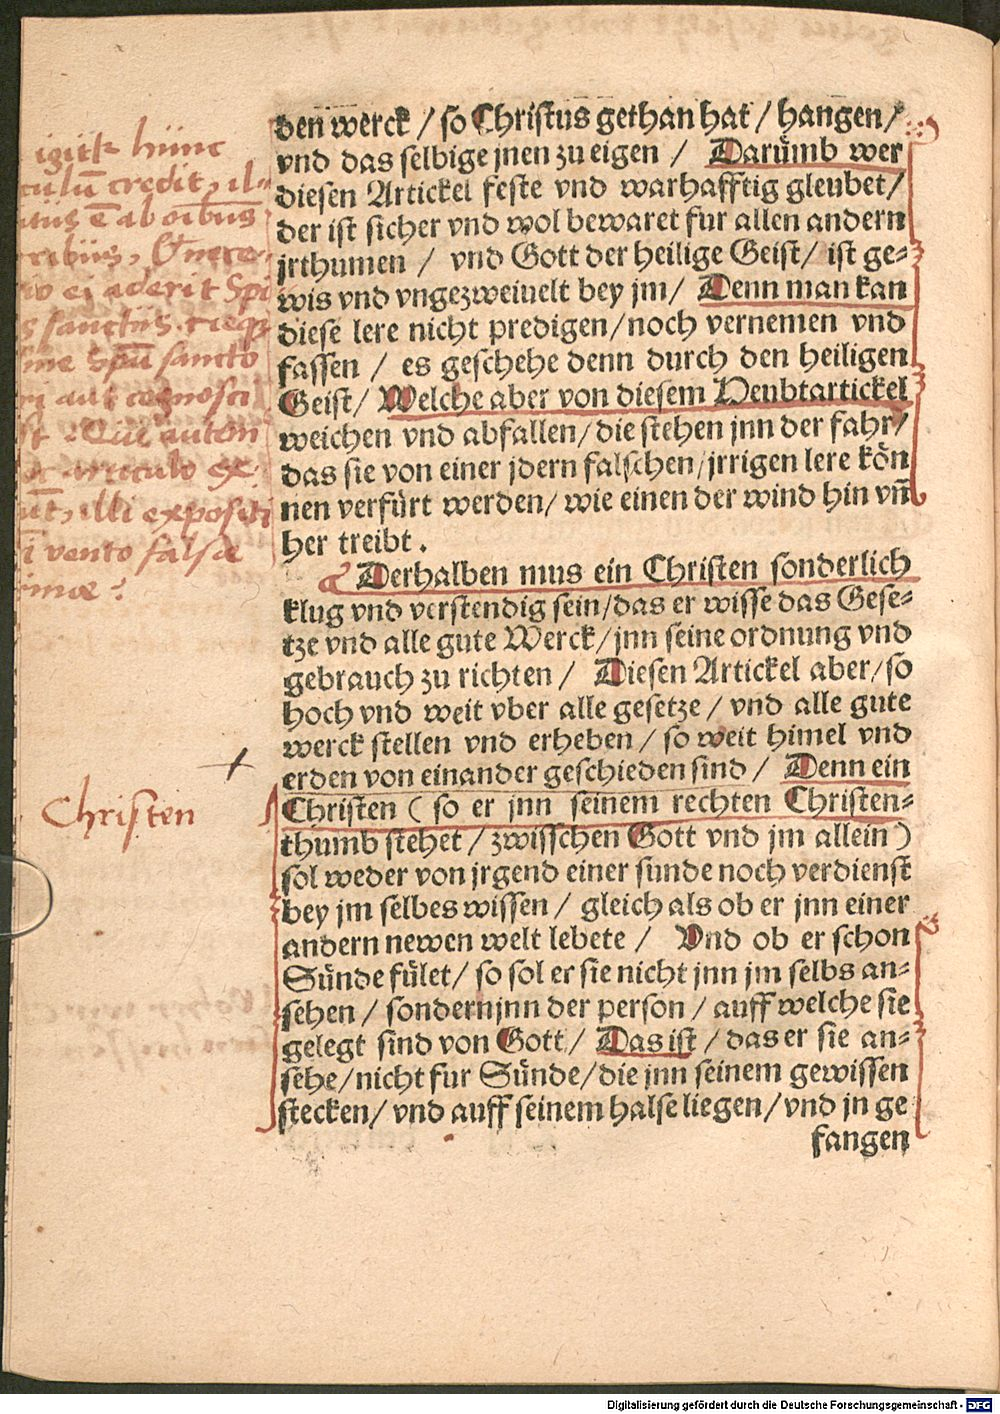 den werck / so Christus gethan hat / hangen /
vnd das selbige jnen zu eigen / Darumb wer
diesen Artickel feste vnd warhafftig gleubet /
der ist sicher vnd wol bewaret fur allen andern
jrthumen / vnd Gott der heilige Geist / ist ge-
wis vnd vngezweiuelt bey jm / Denn man kan
diese lere nicht predigen / noch vernemen vnd
fassen / es geschehe denn durch den heiligen
Geist / Welche aber von diesem Heubtartickel
weichen vnd abfallen / die stehen jnn der fahr /
das sie von einer jdern falschen / jrrigen lere kön
nen verfürt werden / wie einen der wind hin vn̄
her treibt .
Derhalben mus ein Christen sonderlich
klug vnd verstendig sein / das er wisse das Gese-
tze vnd alle gute Werck / jnn seine ordnung vnd
gebrauch zu richten / Diesen Artickel aber / so
hoch vnd weit vber alle gesetze / vnd alle gute
werck stellen vnd erheben / so weit himel vnd
erden von einander geschieden sind / Denn ein
Christen ( so er jnn seinem rechten Christen-
thumb stehet / zwisschen Gott vnd jm allein )
sol weder von jrgend einer sunde noch verdienst
bey jm selbes wissen / gleich als ob er jnn einer
andern newen welt lebete / Vnd ob er schon
Sünde fület / so sol er sie nicht jnn jm selbs an-
sehen / sondern jnn der person / auff welche sie
gelegt sind von Gott / Das ist / das er sie an-
sehe / nicht fur Sünde / die jnn seinem gewissen
stecken / vnd auff seinem halse liegen / vnd jn ge
fangen
hunc
credit, il-
aderit Spi
sanctus
sancto
cognosci
autem
illi expositi
vento falsæ
Christen
Digitalisierung gefördert durch die Deutsche Forschungsgemeinschaft - DFG